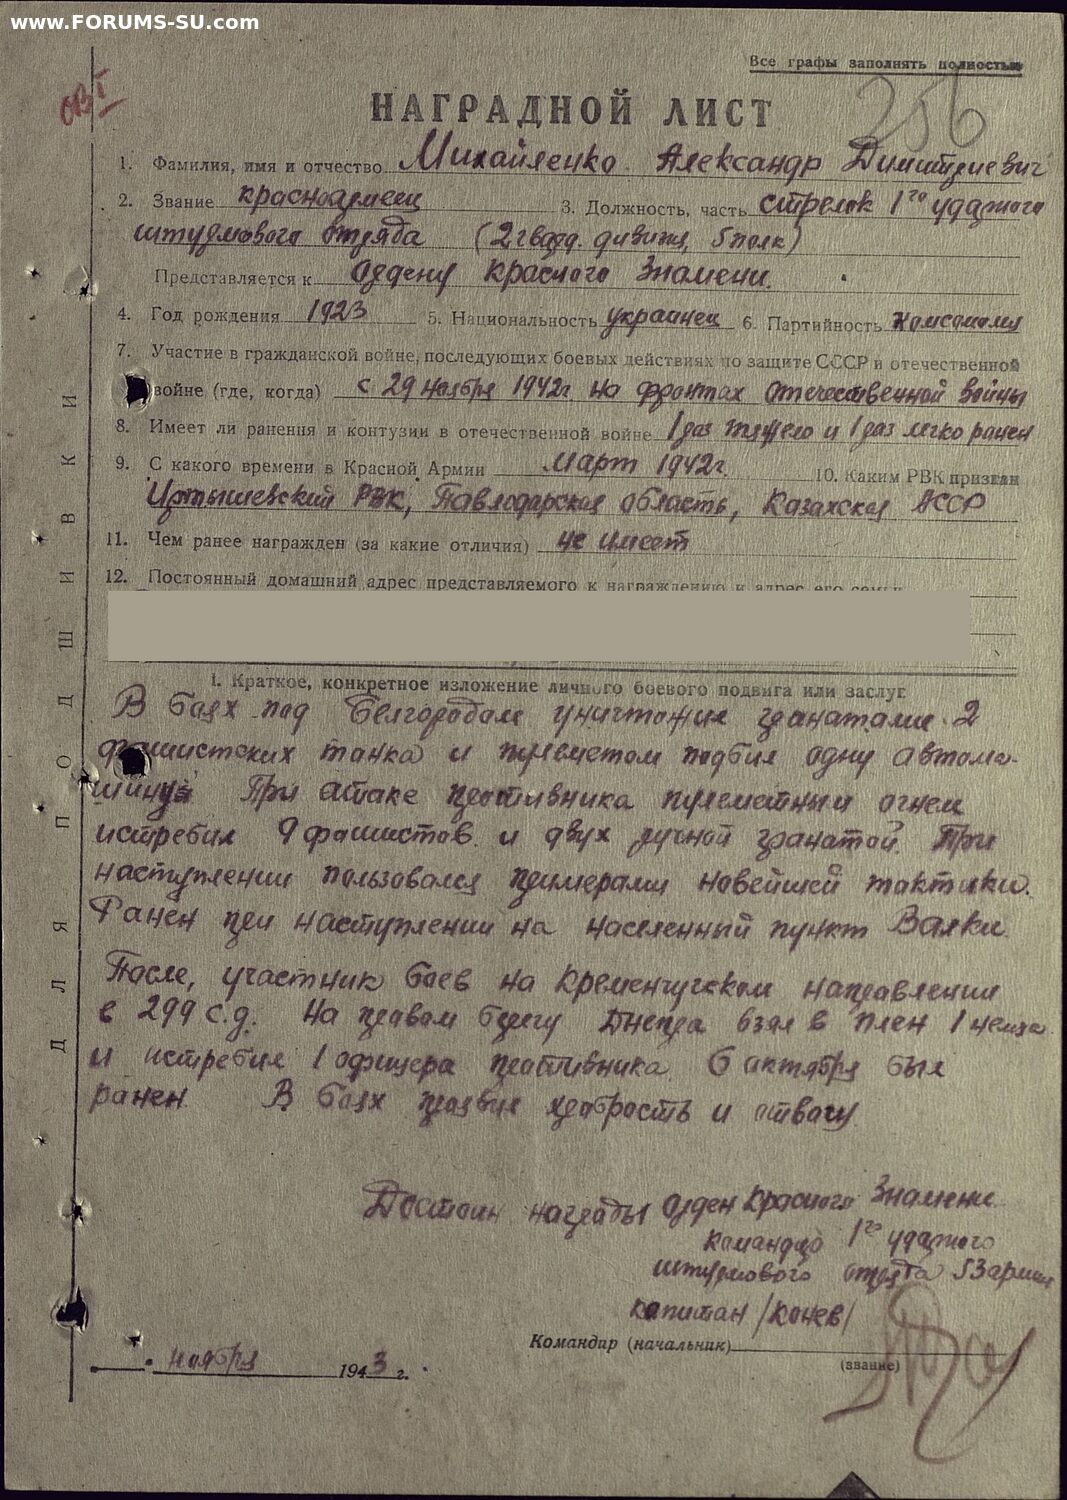 www.FORUMS-SU.com
Все графы заполнять полностью
ОВ I
256
НАГРАДНОЙ ЛИСТ
1. Фамилия, имя и отчество Михайленко Александр Димитриевич
2. Звание красноармеец 3. Должность, часть стрелок 1го ударного
штурмового отряда (2 гвард. дивизия, 5 полк)
Представляется к ордену Красного Знамени.
4. Год рождения 1923 5. Национальность украинец 6. Партийность комсомолец
7. Участие в гражданской войне, последующих боевых действиях по защите СССР и отечественной
войне (где, когда) с 29 ноября 1942г. на фронтах отечественной войны
8. Имеет ли ранения и контузии в отечественной войне 1 раз тяжело и 1 раз легко ранен
9. С какого времени в Красной Армии Март 1942г. 10. Каким РВК призван
Иртышевский РВК, Павлодарская область, Казахская АССР
11. Чем ранее награжден (за какие отличия) не имеет
12. Постоянный домашний адрес представляемого к награждению и адрес его семьи
I. Краткое, конкретное изложение личного боевого подвига или заслуг
В боях под Белгородом уничтожил гранатами 2
фашистских танка и пулеметом подбил одну автома-
шину. При атаке противника пулеметным огнем
истребил 9 фашистов и двух ручной гранатой. При
наступлении пользовался примерами новейшей тактики.
Ранен при наступлении на населенный пункт Валки.
После, участник боев на Кременчугском направлении
в 299 с.д. На правом берегу Днепра взял в плен 1 немца
и истребил 1 офицера противника. 6 октября был
ранен. В боях проявил храбрость и отвагу.
Достоин награды Орден Красного Знамени
командир 1го ударного
штурмового отряда 53 армии
капитан /Конев/
Командир (начальник)
(звание)
ноября 1943 г.
ДЛЯ ПОДШИВКИ